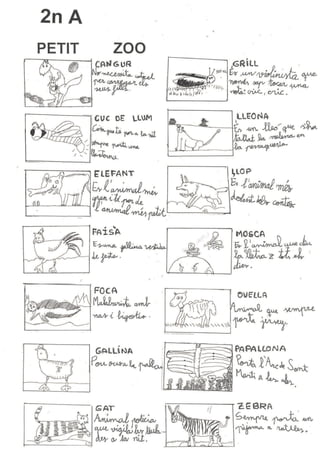 2n A
PETIT ZOO
CANGUR
No necessita cotxet
per carregar els
seus fills.
CUC DE LLUM
Com que té por a la nit
sempre porta una
llanterna.
ELEFANT
És l'animal més
gran i té por de
l'animal més petit.
FAISÀ
És una gallina vestida
de festa.
FOCA
Malabarista amb
nas i bigotis.
GALLINA
Pon sobre la palla.
GAT
Animal policia
que vigila les teula-
des a la nit.
GRILL
És un violinista que
només sap tocar una
nota: cric, cric.
LLEONA
És un lleó que s'ha
tallat la melena en
la perruqueria.
LLOP
És l'animal més
dolent dels contes.
MOSCA
És l'animal que diu
la lletra z tots els
dies.
OVELLA
Animal que sempre
porta jersey.
PAPALLONA
Porta l'Arc de Sant
Martí a les ales.
ZEBRA
Sempre porta un
pijama a ratlles.